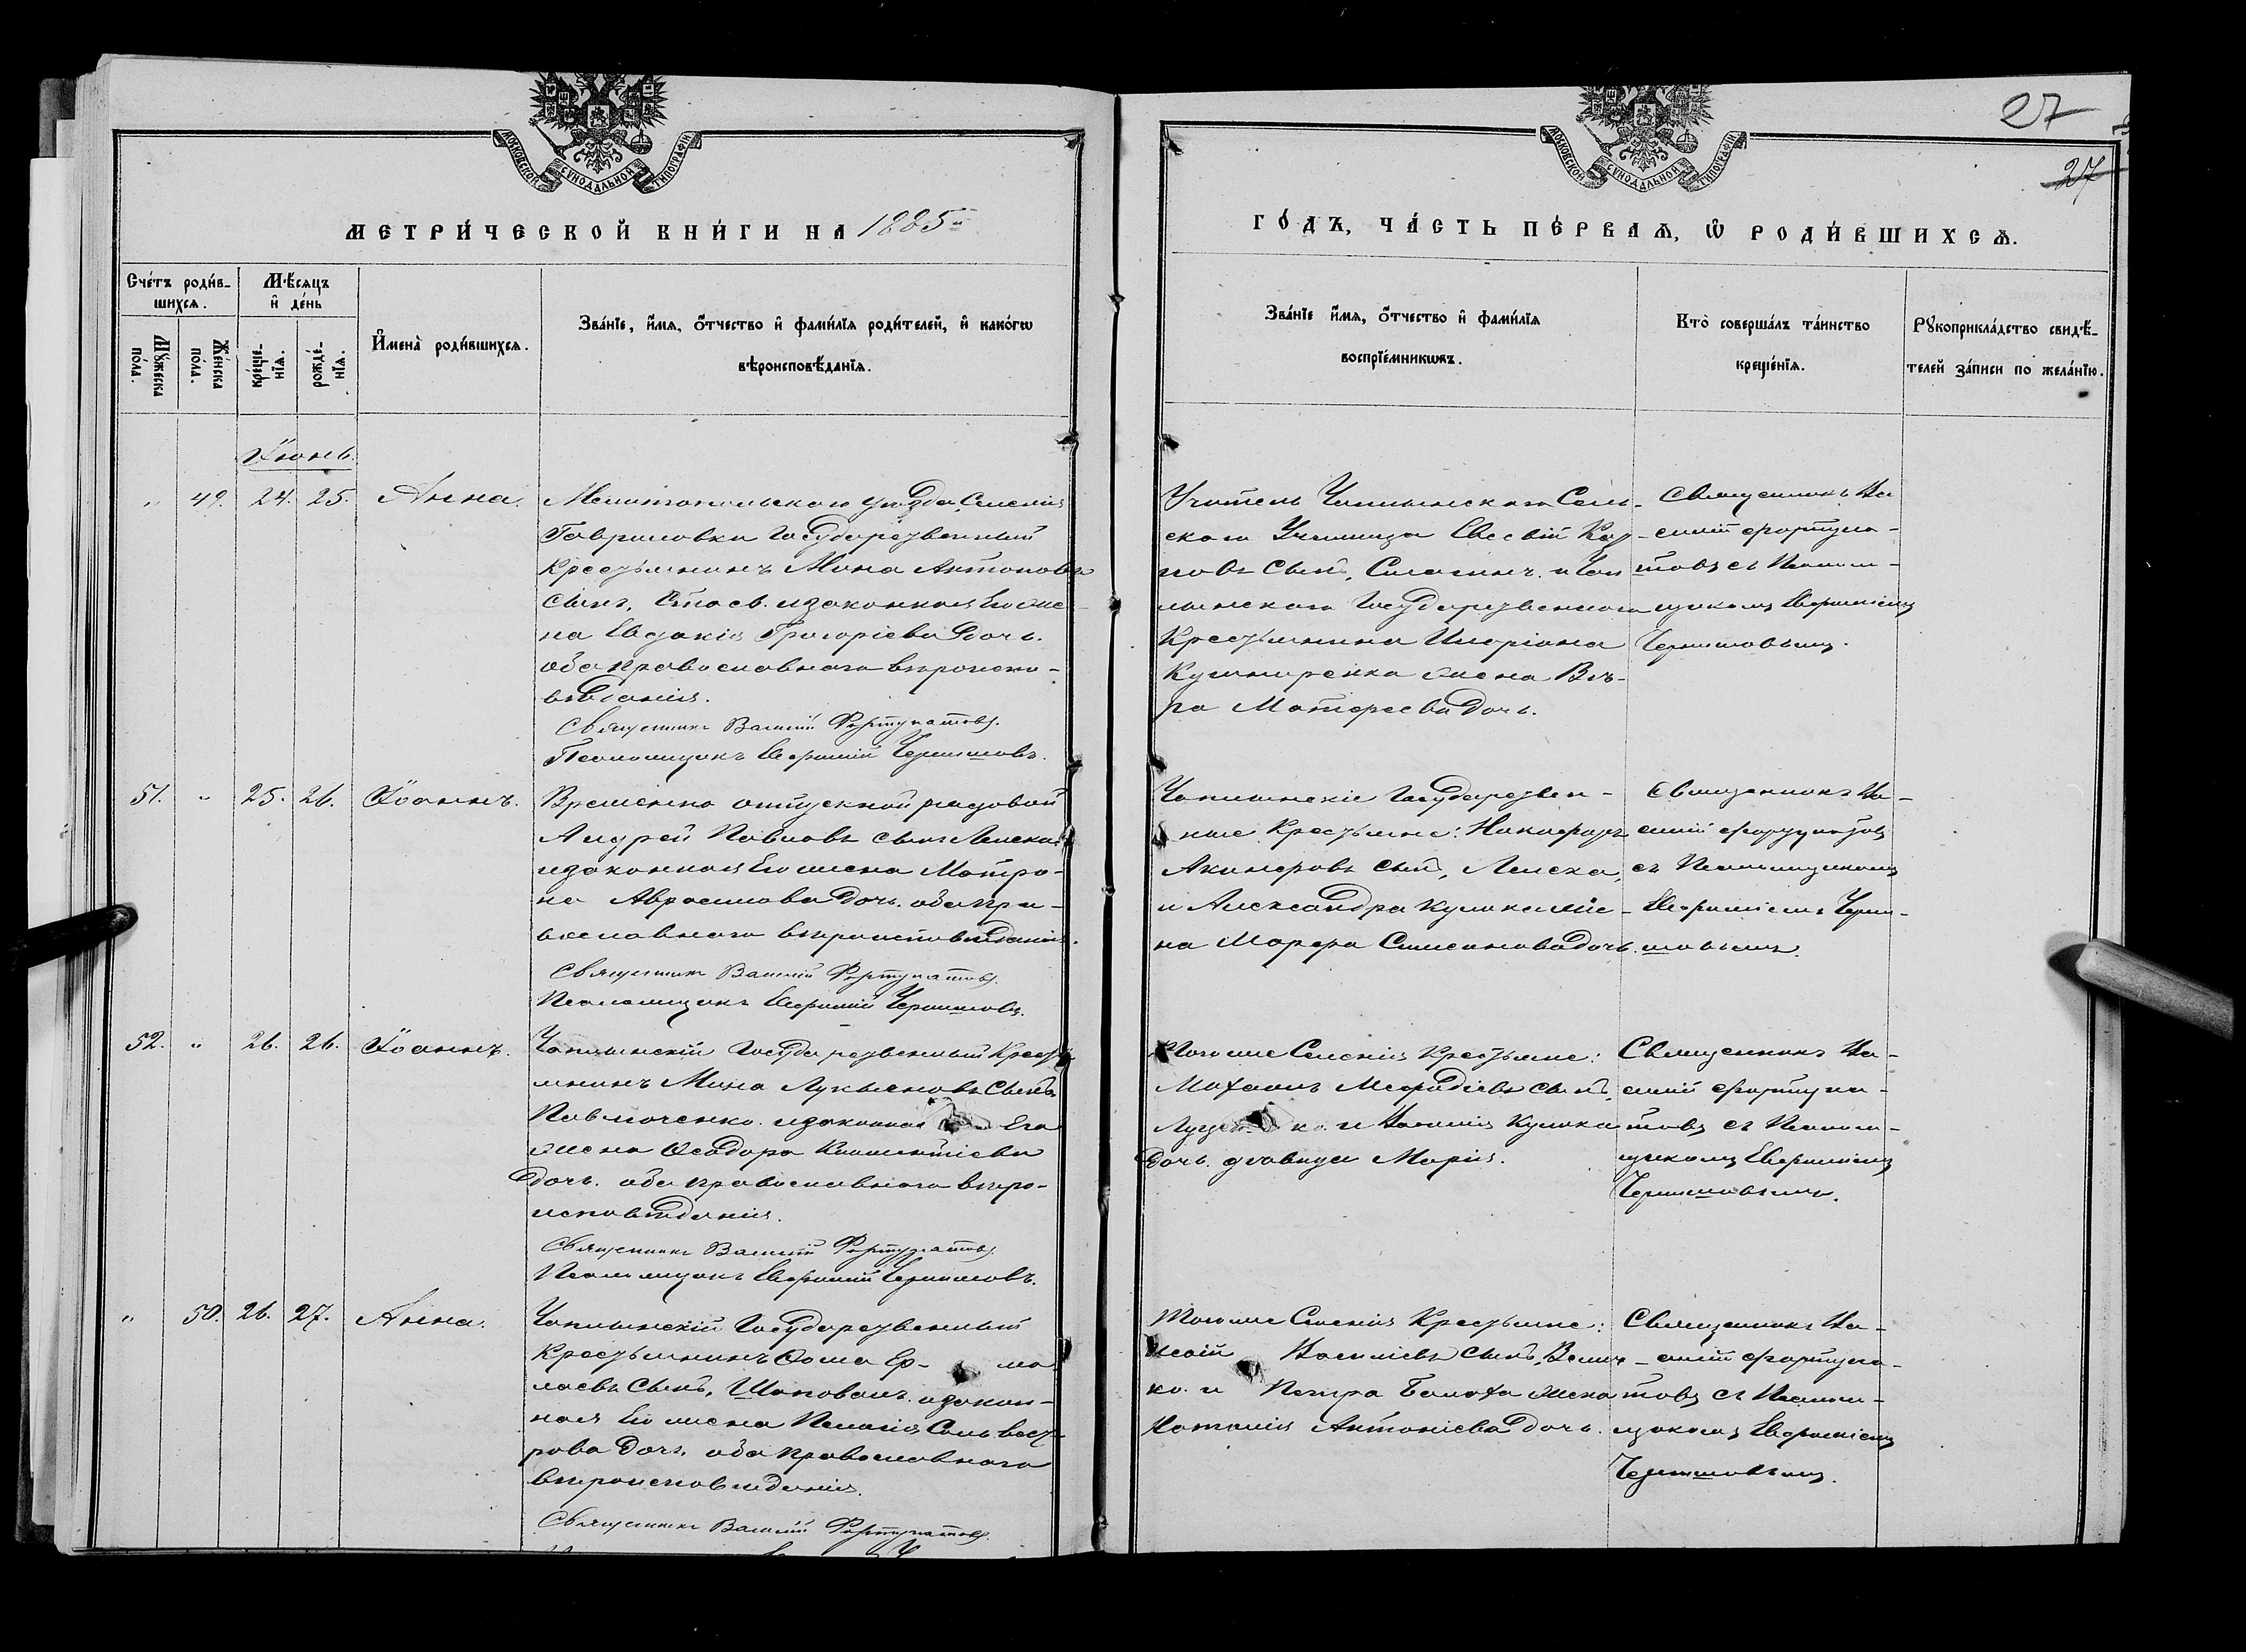 МОСКОВСКОЙ СѴНОДАЛЬНОЙ ТИПОГРАФІИ
МЕТРИ́ЧЕСКОЙ КНИ́ГИ НА 1885й
Сче́тъ роди́в-
шихсѧ.
Мѣ́сяцъ
и҆ де́нь
Мꙋ́жеска
по́ла.
Же́нска
по́ла.
креще́-
нїѧ.
рожде́-
нїѧ.
И҆мена̀ роди́вшихсѧ.
Зва́нїе, и҆́мѧ, ѻ҆́тчество и҆ фами́лїѧ роди́телей, и҆ како́гѡ
вѣроисповѣ́данїѧ.
Іюнь.
„ 49. 24. 25. Анна.
Мелитопольского уѣзда, Селенія
Гавриловки Государственный
Крестьянинъ Мина Антоновъ
сынъ, и законная Его же-
на Евдокія Григоріева дочь.
оба православнаго вѣроиспо-
вѣданія.
Священникъ Василій Фортунатовъ.
Псаломщикъ Евфимій Чернышовъ.
51. „ 25. 26. Іоаннъ.
Временно отпускной рядовой
Андрей Павловъ сынъ Леляка
и законная Его жена Матро-
на Аврамова дочь. оба пра-
вославнаго вѣроисповѣданія.
Священникъ Василій Фортунатовъ.
Псаломщикъ Евфимій Чернышовъ.
52. „ 26. 26. Іоаннъ.
Чаплынскій Государственный Кресть-
янинъ Мина Лукьяновъ сынъ,
Павлюченко. и законная Его
жена Ѳеодора Климентіева
дочь. оба православнаго вѣро-
исповѣданія.
Священникъ Василій Фортунатовъ.
Псаломщикъ Евфимій Чернышовъ.
„ 50. 26. 27. Анна.
Чаплынскій Государственный
Крестьянинъ Ѳома Ер- мо
лаевъ сынъ, Шаповалъ. и закон-
ная Его жена Пелагія Сильвест-
рова дочь. оба православнаго
вѣроисповѣданія.
Священникъ Василій Фортунатовъ.
27
27
МОСКОВСКОЙ СѴНОДАЛЬНОЙ ТИПОГРАФІИ
ГО́ДЪ, ЧА́СТЬ ПЕ́РВАѦ, Ѡ҆ РОДИ́ВШИХСѦ.
Зва́нїе и҆́мѧ, ѻ҆́тчество и҆ фами́лїѧ
воспрїе́мникѡвъ.
Кто̀ соверша́лъ та́инство
креще́нїѧ.
Рꙋкоприкла́дство свидѣ́-
телей за́писи по жела́нїю.
Учитель Чаплынскаго Сель-
скаго Училища Евсевій Кар-
повъ сынъ, и Чап
лынскаго Государственнаго
Крестьянина Иларіона
Кушниренка жена Вѣ-
ра Матвѣева дочь.
Священникъ Ва-
силій Фортуна-
товъ съ Псалом-
щикомъ Евфиміемъ
Чернышовымъ.
Чаплынскіе Государствен-
ные Крестьяне: Никифоръ
сынъ, Леляка,
и Александра Кулика же-
на Марфа Симеонова дочь.
Священникъ Ва-
силій Фортунатовъ
съ Псаломщикомъ
Евфиміемъ Черны-
шовымъ.
Тогоже Селенія Крестьяне:
Михаилъ Меѳодіевъ сынъ,
ко. и Кулика
дочь. дѣвица Марія.
Священникъ Ва-
силій Фортуна-
товъ съ Псалом-
щикомъ Евфиміемъ
Чернышовымъ.
Тогоже Селенія Крестьяне:
Васильевъ сынъ, Велич-
ко. и Петра Балаха жена
Наталія Антоніева дочь.
Священникъ Ва-
силій Фортуна-
товъ съ Псалом-
щикомъ Евфиміемъ
Чернышовымъ.